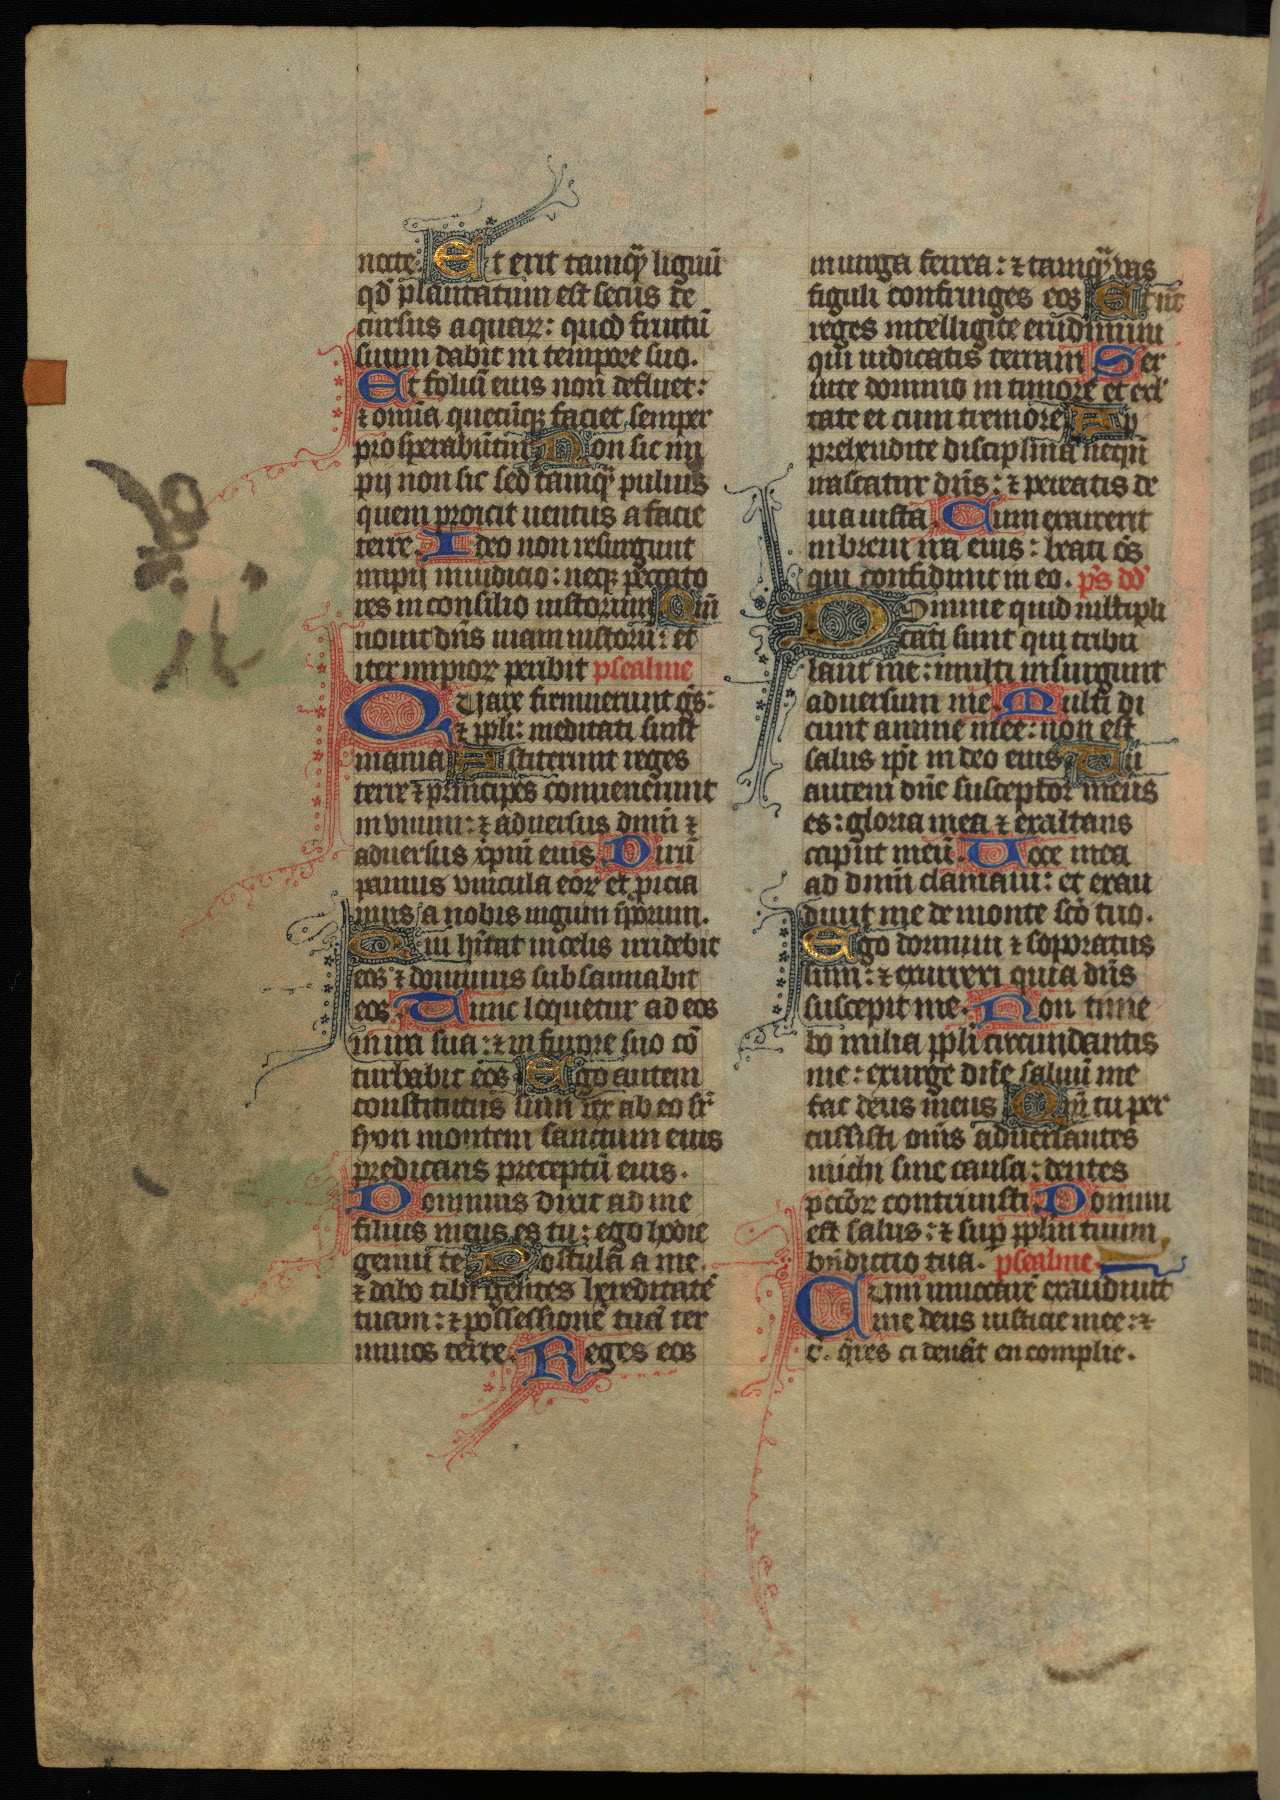 nocte. Et erit tamq̃ lignũ
qđ plantatum est secus de
cursus aquaꝝ: quod fructũ
suum dabit in tempore suo.
Et foliũ eius non defluet:
⁊ omĩa quecũqꝫ faciet semper
prosperabũtur Non sic im
pij non sic sed tamq̃ puluis
quem proicit uentus a facie
terre. Ideo non resurgunt
impij in iudicio: neqꝫ peccato
res in consilio iustorum Qm̃
nouit dñs uiam iustorũ: et
iter impioꝝ peribit psealme
Quare fremuerunt gẽs:
⁊ ppli: meditati sunt
inania Astiterunt reges
terre ⁊ principes conuenerunt
in vnum: ⁊ aduersus dnm̃ ⁊
aduersus xp̃m eius Dirũ
pamus vincula eoꝝ et proicia
mus a nobis iugum ip̃orum.
Qui hĩtat in celis irridebit
eos ⁊ dominus subsannabit
eos. Tunc loquetur ad eos
in ira sua: ⁊ in furore suo cõ
turbabit eos Ego autem
constitutus sum rex ab eo sr̃
syon montem sanctum eius
predicans preceptũ eius.
Dominus dixit ad me
filius meus es tu: ego hodie
genui te Postula a me.
⁊ dabo tibi gentes hereditatẽ
tuam: ⁊ possessionẽ tuã ter
minos terre. Reges eos
in uirga ferrea: ⁊ tamq̃ vas
figuli confringes eos Et nũc
reges intelligite erudimini
qui iudicatis terram Ser
uite domino in timore et exl
tate ei cum tremore Ap
prehendite disciplinã nequñ
irascatur dñs: ⁊ pereatis de
uia iusta. Cum exarserit
in breui ira eius: beati oẽs
qui confidunt in eo. ps dd
Domine quid multipli
cati sunt qui tribu
lant me: multi insurgunt
aduersum me Multi di
cunt anime mee: non est
salus ipi in deo eius Tu
autem dñe susceptor meus
es: gloria mea ⁊ exaltans
caput meũ. Voce mea
ad dnm̃ clamaui: et exau
diuit me de monte sc̃o suo.
Ego dormiui ⁊ soporatus
sum: ⁊ exurrexi quia dñs
suscepit me. Non time
bo milia ppli circundantis
me: exurge dñe saluũ me
fac deus meus Qm̃ tu per
cussisti om̃s aduersantes
michi sine causa: dentes
pctõꝝ contriuisti Domini
est salus: ⁊ sup pplm̃ tuum
bñdictio tua. psealme
Cum inuocarẽ exaudiuit
me deus iusticie mee: ⁊
c̃. q̃res ci deuãt en complie.